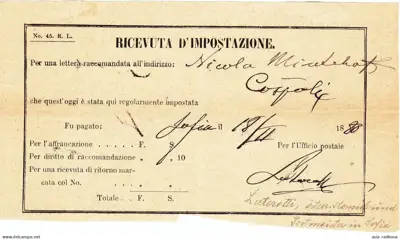 No. 45. R. L.
RICEVUTA D'IMPOSTAZIONE.
Per una lettera raccomandata all'indirizzo: Nicola
che quest'oggi è stata qui regolarmente impostata
Fu pagato: Sofia il 18/VII 1880
Per l'affraucazione F. S.
Per l'Ufficio postale
Per diritto di raccomandazione „ „ 10
Per una ricevuta di ritorno mar-
cata col No. F. S.
Totale F. S.
in Sofia